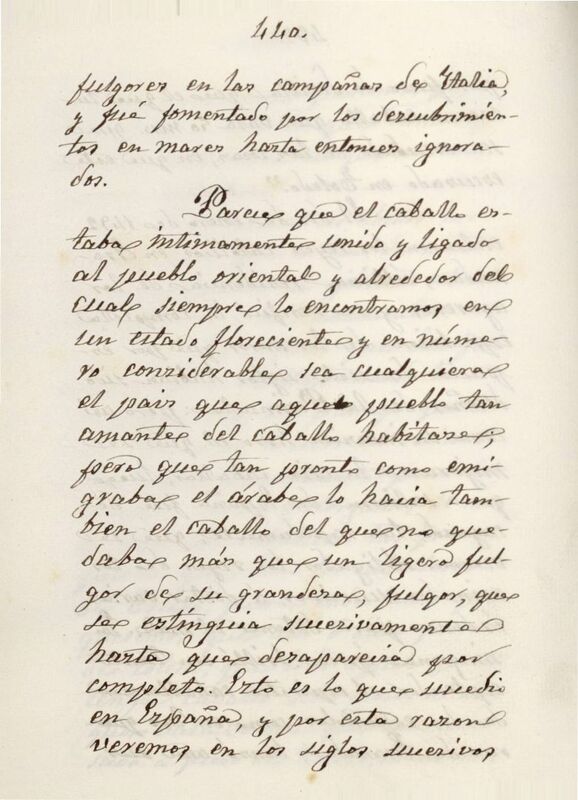 440.
fulgores en las campañas de Italia,
y fué fomentado por los descubrimien-
tos en mares hasta entonces ignora-
dos.
Parece que el caballo es-
taba intimamente unido y ligado
al pueblo oriental y alrededor del
cual siempre lo encontramos en
un estado floreciente y en núme-
ro considerable sea cualquiera
el pais que aquel pueblo tan
amante del caballo habitase;
pero que tan pronto como emi-
graba el árabe lo hacia tam-
bien el caballo del que no que-
daba más que un ligero ful-
gor de su grandeza, fulgor, que
se estinguia sucesivamente
hasta que desaparecia por
completo. Esto es lo que sucedio
en España, y por esta razon
veremos en los siglos sucesivos